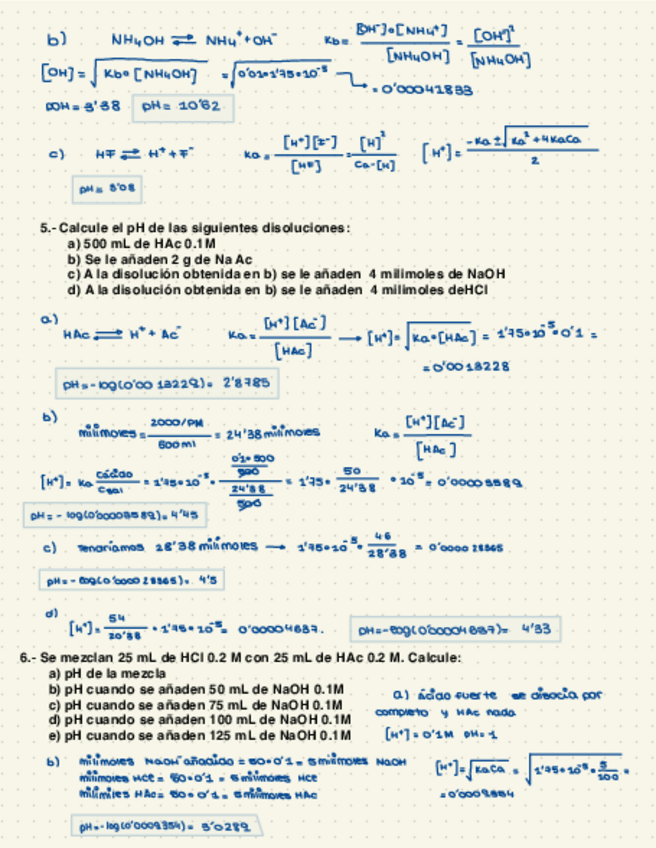 b) NH4OH ⇌ NH4+ + OH- Kb = [OH-]·[NH4+] / [NH4OH] = [OH-]² / [NH4OH]
[OH] = √Kb·[NH4OH] = √0'01·1'75·10-5 → = 0'00041833
pOH = 3'38 pH = 10'62
c) HF ⇌ H+ + F- Ka = [H+][F-] / [HF] = [H]² / Ca-[H] [H+] = -Ka ± √Ka² + 4KaCa / 2
pH = 3'08
5.- Calcule el pH de las siguientes disoluciones:
a) 500 mL de HAc 0.1M
b) Se le añaden 2 g de Na Ac
c) A la disolución obtenida en b) se le añaden 4 milimoles de NaOH
d) A la disolución obtenida en b) se le añaden 4 milimoles deHCl
a)
HAc ⇌ H+ + Ac- Ka = [H+][Ac-] / [HAc] → [H+] = √Ka·[HAc] = 1'75·10-5·0'1 =
= 0'0013228
pH = -log(0'0013229) = 2'8785
b)
milimoles = 2000/PM / 500ml = 24'38 milimoles Ka = [H+][Ac-] / [HAc]
[H+] = Ka Cácido / Csal = 1'75·10-5 · 0'1·500 / 500 / 24'38 / 500 = 1'75· 50 / 24'38 ·10-5 = 0'00003589
pH = -log(0'00003589) = 4'45
c) Tendríamos 28'38 milimoles → 1'75·10-5 · 46 / 28'38 = 0'0000 28365
pH = -log(0'0000 28365) = 4'5
d)
[H+] = 54 / 20'38 · 1'75·10-5 = 0'00004637. pH = -log(0'00004637) = 4'33
6.- Se mezclan 25 mL de HCl 0.2 M con 25 mL de HAc 0.2 M. Calcule:
a) pH de la mezcla
b) pH cuando se añaden 50 mL de NaOH 0.1M
c) pH cuando se añaden 75 mL de NaOH 0.1M
d) pH cuando se añaden 100 mL de NaOH 0.1M
e) pH cuando se añaden 125 mL de NaOH 0.1M
a) ácido fuerte se disocia por
completo y HAc nada
[H+] = 0'1M pH = 1
b) milimoles NaOH añadido = 50·0'1 = 5 milimoles NaOH
milimoles HCl = 50·0'1 = 5 milimoles HCl
milimoles HAc = 50·0'1 = 5 milimoles HAc
[H+] = √KaCa = √1'75·10-5· 5 / 100 =
= 0'0009354
pH = -log(0'0009354) = 3'0289